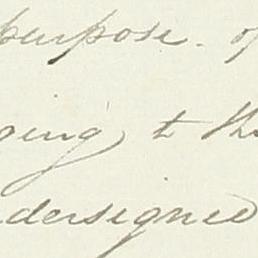 purpose. of
oing to th
dersigned